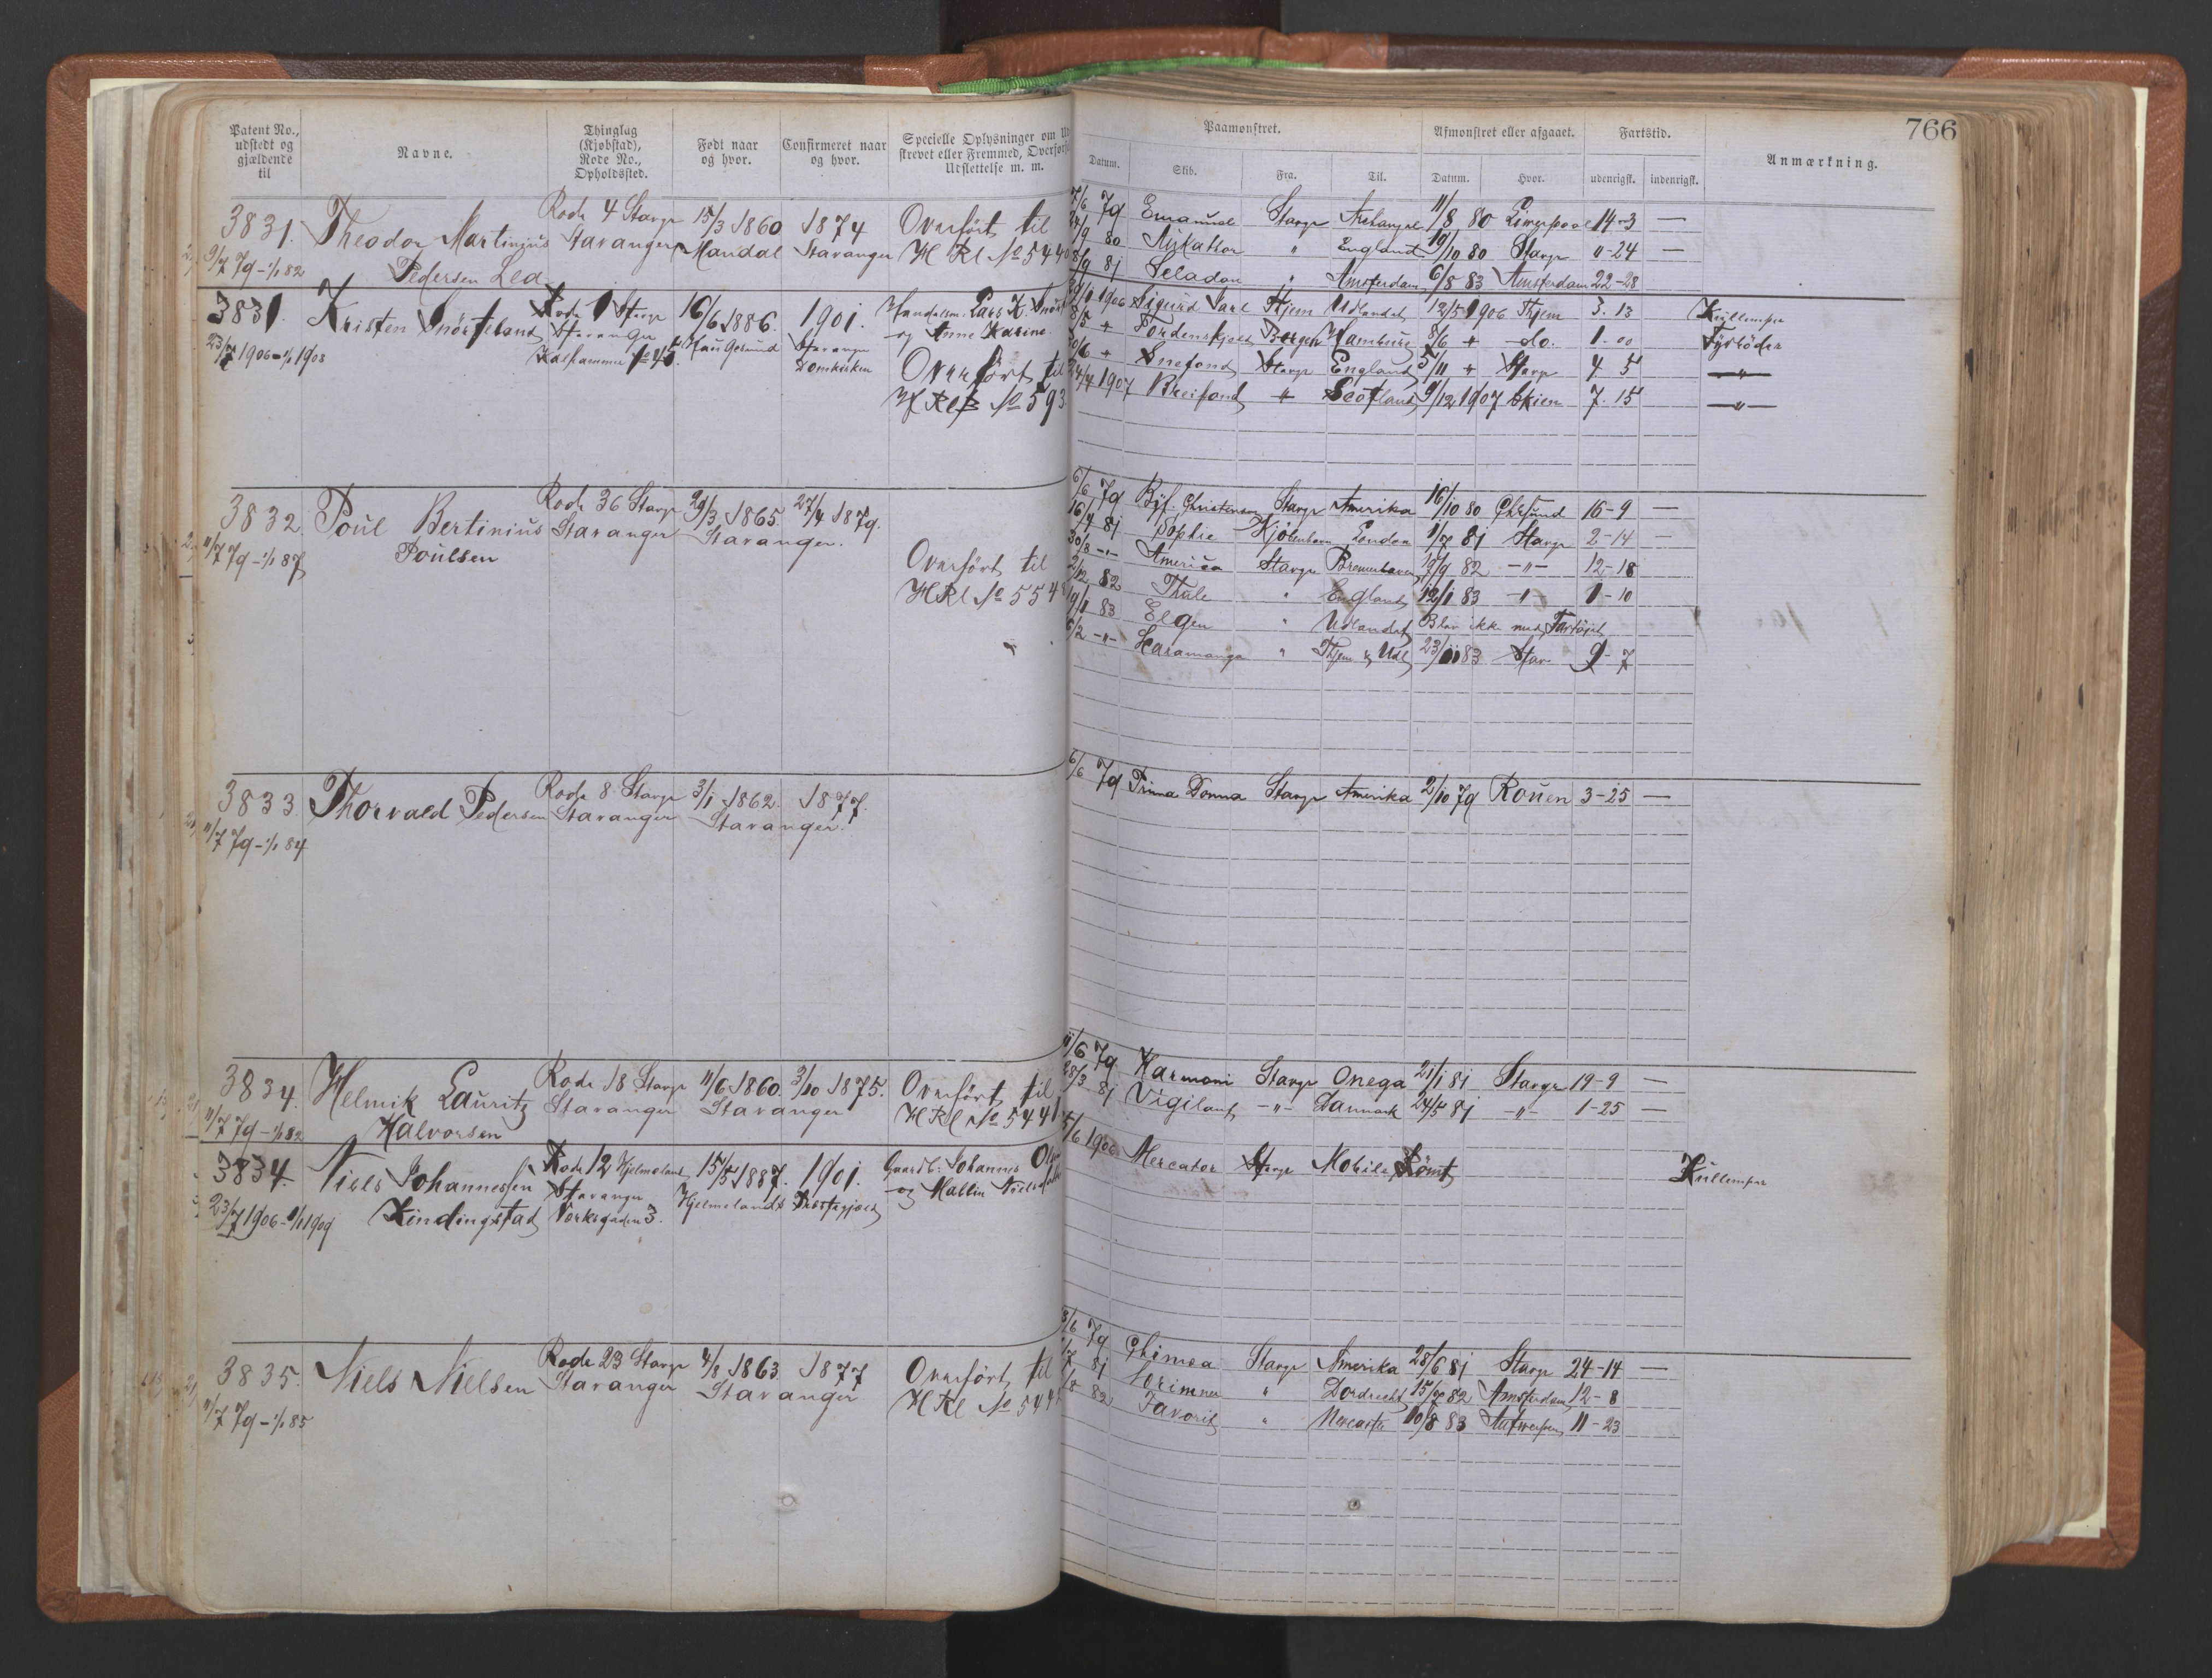 766
Patent No., udstedt og gjældende til
Navne.
Thinglag (Kjøbstad), Rode No., Opholdssted.
Født naar og hvor.
Confirmeret naar og hvor.
Specielle Oplysninger om
skrevet eller Fremmed, Overfør
Udslettelse m. m.
Paamønstret.
Afmønstret eller afgaaet.
Fartstid.
Anmærkning.
Datum.
Skib.
Fra.
Til.
Datum.
Hvor.
udenrigsk.
indenrigsk.
3831. Theodor Martinius Rode 4 Stavgr 15/3 1860 1874 Overført til
9/7 79 - 1/1 82 Pedersen Lea Stavanger Mandal Stavanger HRl No 5440
7/6 79 Emanuel Stavgr Archangel 11/8 80 Liverpool 14-3 —
80 England 19/10 80 Stavgr "-24 —
81 Seladon " Amsterdam 6/8 83 Amsterdam 22-28
3831. Kristen Snörteland Rode 1 Stavgr 16/6 1886. 1901. Handelsm. Lars K. Snört
23/7 1906 - 1/1 1908 Stavanger Haugesund Stavanger og Anne Karine.
No 45. Domkirken Overført til
HRlB No 593
1906 Sigurd Jarl Thjem Udlandet 12/5 1906 Thjem 3. 13 Kullemper
Tordenskjold Bergen Hamburg 8/6 + do. 1. 00 Fyrböder
Snefond Stavgr England 5/11 + Stavgr 4. 5 —"—
1907 Breifond + Scotland 9/12 1907 Skien 7. 15 —"—
3832. Poul Bertinius Rode 36 Stavgr 29/3 1865. 27/4 1879.
11/7 79 - 1/1 87 Poulsen Stavanger Stavanger.
Overført til
HRl No 554
6/6 79 Byf. Christensen Stavgr Amerika 16/10 80 Chrsund 16-9 —
16/4 81 Sophie Kjöbenhavn London 1/7 81 Stavgr 2-14 —
30/8 -"- America Stavgr Bremerhaven 19/9 82 -"- 12-18
2/12 82 Thule " England 12/1 83 -"- 1-10
19/1 83 Elgen " Udlandet Blev ikke med Fartöjet
6/2 -"- Haramanga " Thjem & Udl 23/11 83 Stav 9-7
3833. Thorvald Pedersen Rode 8 Stavgr 3/1 1862. 1877.
11/7 79 - 1/1 84 Stavanger Stavanger.
6/6 79 Prima Donna Stavgr Amerika 2/10 79 Rouen 3-25 —
3834. Helmik Lauritz Rode 18 Stavgr 11/6 1860. 3/10 1875. Overført til
11/7 79 - 1/1 82 Halvorsen Stavanger Stavanger HRl No 5441
11/6 79 Harmoni Stavgr Onega 21/1 81 Stavgr 19-9 —
28/3 81 Vigilant -"- Danmark 24/5 81 -"- 1-25 —
3834. Niels Johannessen Rode 12 Hjelmeland 15/5 1887. 1901. Gaardb. Johannes
23/7 1906 - 1/1 1909 Kindingstad Stavanger Hjelmeland og Mallin
Verksgaden 3.
1906 Mercator Stavgr Mobile Römt Kullemper
3835. Niels Nielsen Rode 23 Stavgr 4/8 1863. 1877 Overført til
11/7 79 - 1/1 85 Stavanger Stavanger HRl No 544
79 Stavgr Amerika 28/6 81 Stavgr 24-14 —
81 " Dordrecht 15/7 82 Amsterdam 12-8
82 Favorit " Newcastle 10/8 83 Antwerpen 11-23